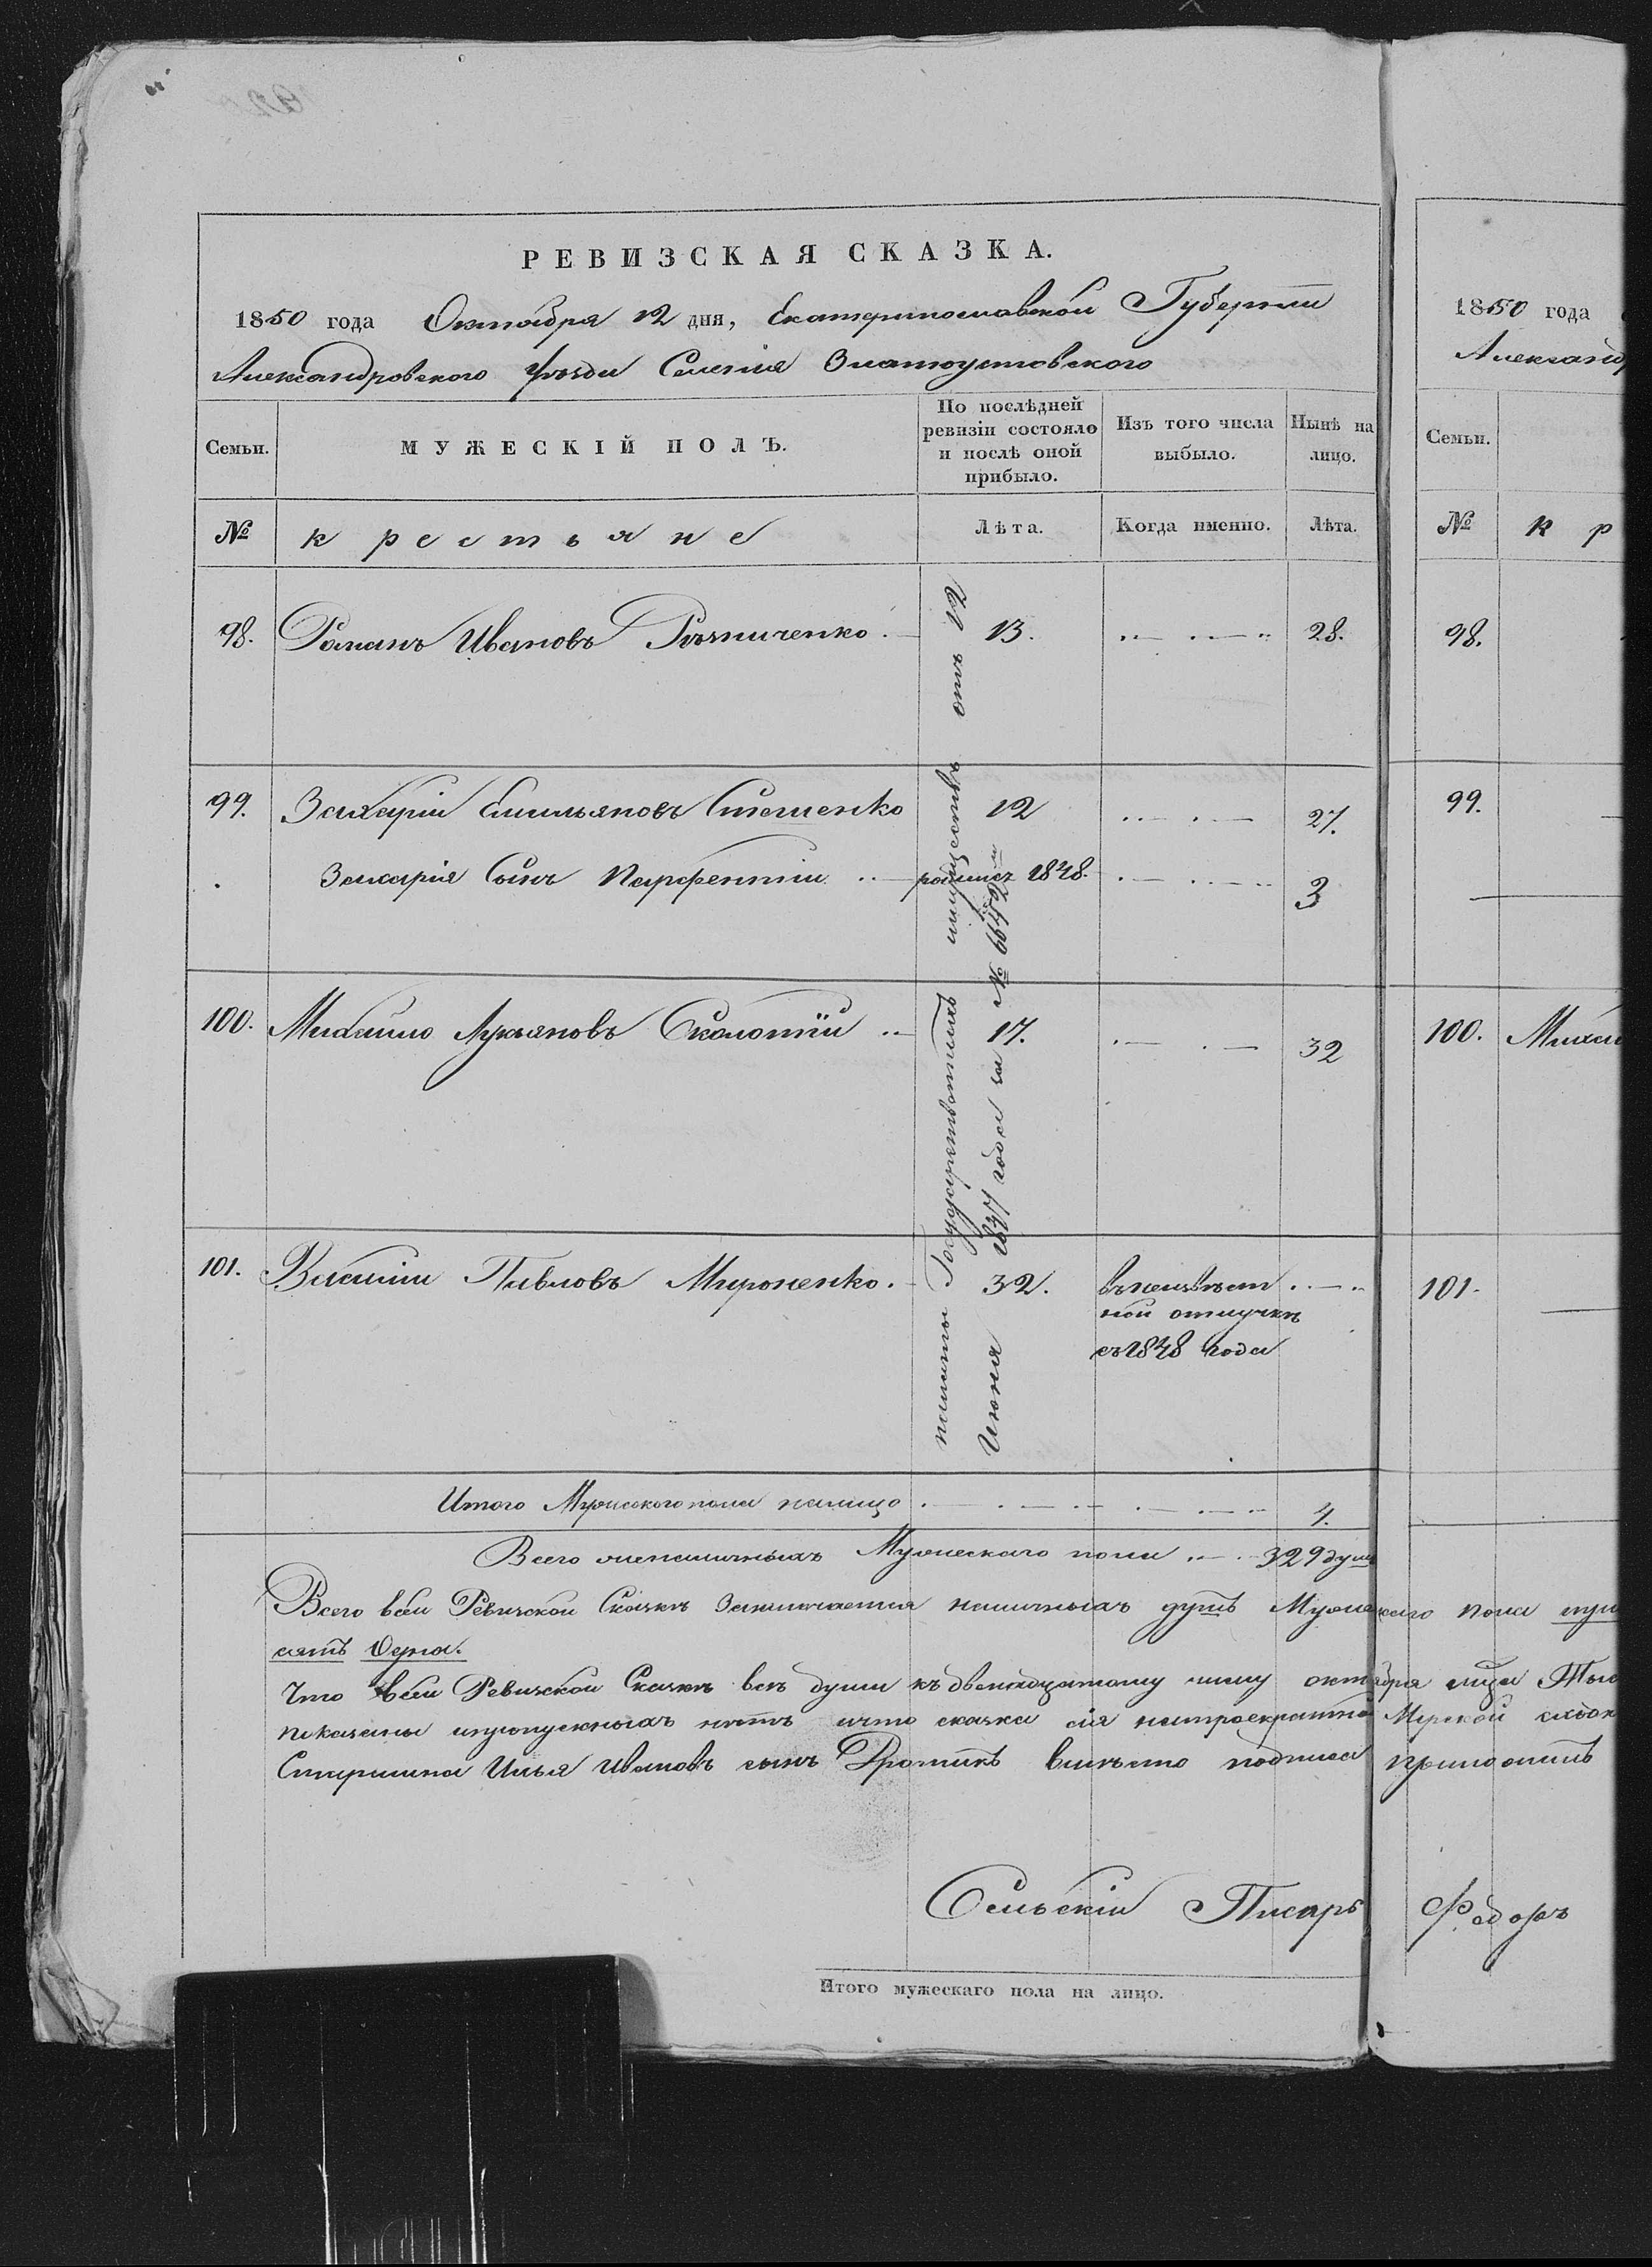 РЕВИЗСКАЯ СКАЗКА.
1850 года Октября 12 дня, Екатеринославской Губернии
Александровского уѣзда Селенія Златоустовского
Семьи.
МУЖЕСКІЙ ПОЛЪ.
По послѣдней ревизіи состояло и послѣ оной прибыло.
Изъ того числа выбыло.
Нынѣ на лицо.
№ крестьяне Лѣта. Когда именно. Лѣта.
98. Романъ Ивановъ Рѣзниченко. 13. 28.
99. Захарій Емильяновъ Стешенко 12 27.
Захарія Сынъ Парфентій родился 1848. 3
100. Михайло Лукьяновъ Сколотій 17. 32
101. Василій Павловъ Мироненко. 32. въ неизвѣст
ной отлучкѣ
съ 1848 года
палаты Государственныхъ имуществъ отъ 12
Июня 1837 года за № 6642
Итого Мужеского пола налицо 4.
Всего наличныхъ Мужескаго пола 329 душъ
Всего всей Ревизской Сказкѣ Заключается наличныхъ душъ Мужескаго пола
сятъ
Что всей Ревизской Сказкѣ всѣ души къ двенадцатому числу октября
показаны и пропускныхъ нѣтъ и что сказка сія на Мирской
Старшина Илья Ивановъ сынъ Дротикъ вмѣсто подписа приложилъ
Сельскій Писарь Федоръ
Итого мужескаго пола на лицо.
1850 года
Александр
Семьи.
№ к р
98.
99.
100. Михаи
101.